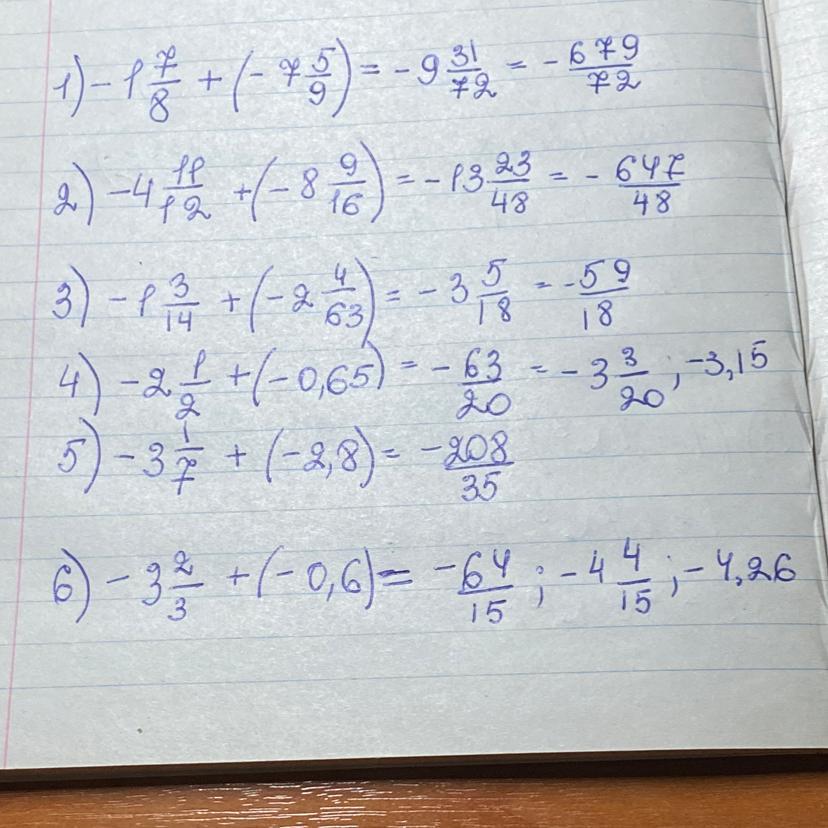 1) -1 7/8 + (-7 5/9) = -9 31/72 = -679/72
2) -4 11/12 + (-8 9/16) = -13 23/48 = -647/48
3) -1 3/14 + (-2 4/63) = -3 5/18 = -59/18
4) -2 1/2 + (-0,65) = -63/20 = -3 3/20; -3,15
5) -3 1/7 + (-2,8) = -208/35
6) -3 2/3 + (-0,6) = -64/15; -4 4/15; -4,26